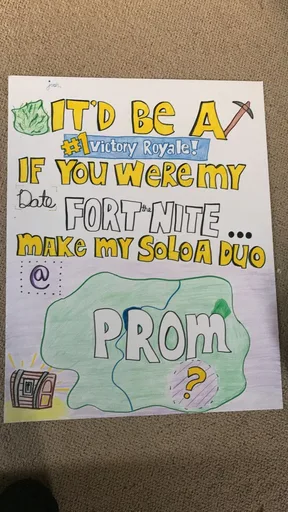 IT'D BE A
#1 Victory Royale!
IF YOU WERE MY
Date FORT the NITE ...
MAKE MY SOLO A DUO
@
PROM
?